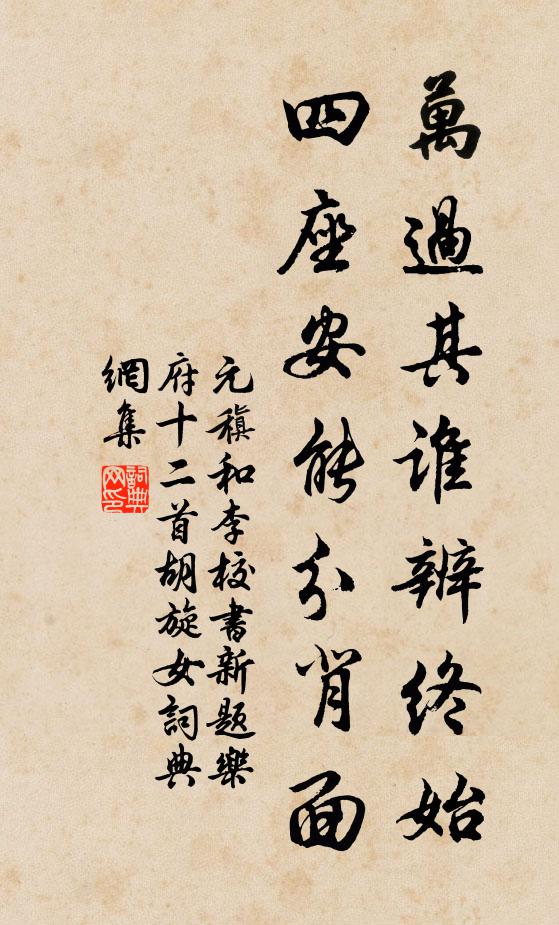 萬過其誰辨終始
四座安能分背面
元稹和李校書新題樂
府十二首胡旋女詞典
網集
詞典網印